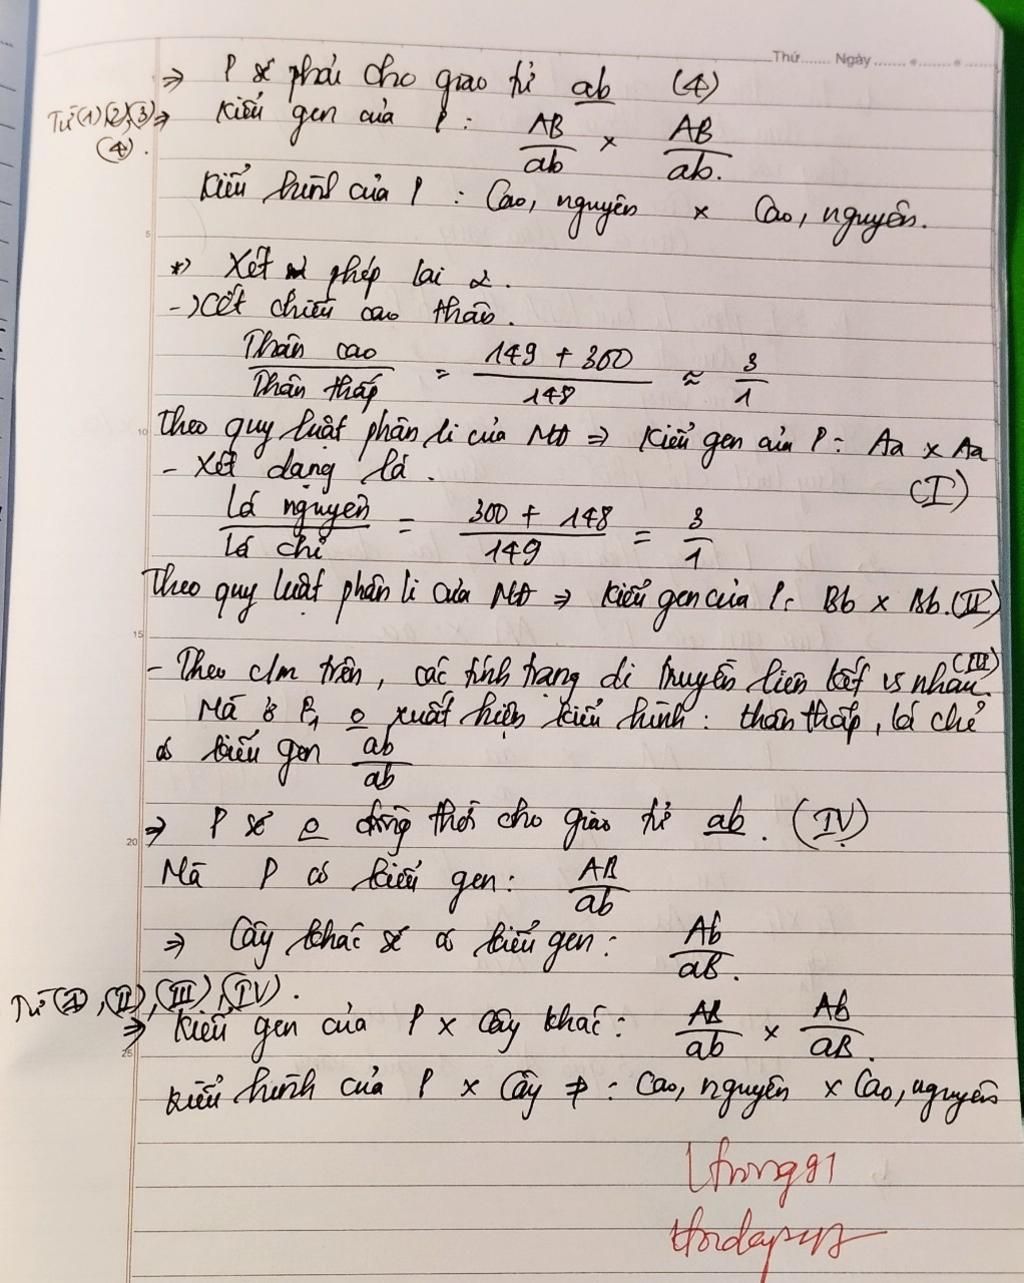 Thứ...... Ngày ...........
⇒ P sẽ phải cho giao tử ab (4)
Từ (1)(2)(3) ⇒ Kiểu gen của P : AB/ab × AB/ab.
(4).
Kiểu hình của P : Cao, nguyên × Cao, nguyên.
5
*) Xét phép lai 2.
-) Xét chiều cao thân.
Thân cao / Thân thấp = 149 + 300 / 148 ≈ 3/1
10
Theo quy luật phân li của MĐ ⇒ Kiểu gen của P : Aa × Aa
(I)
- Xét dạng lá.
Lá nguyên / Lá chẻ = 300 + 148 / 149 = 3/1
Theo quy luật phân li của MĐ ⇒ Kiểu gen của P : Bb × Bb. (II)
15
- Theo c/m trên, các tính trạng di truyền liên kết vs nhau. (III)
Mà ở F1 o xuất hiện kiểu hình : thân thấp, lá chẻ
có kiểu gen ab/ab
20
⇒ P sẽ o đồng thời cho giao tử ab. (IV)
Mà P có kiểu gen : AB/ab
⇒ Cây khác sẽ có kiểu gen : Ab/aB.
Từ (I), (II), (III), (IV).
⇒ Kiểu gen của P × Cây khác : AB/ab × Ab/aB.
25
Kiểu hình của P × Cây ≠ : Cao, nguyên × Cao, nguyên